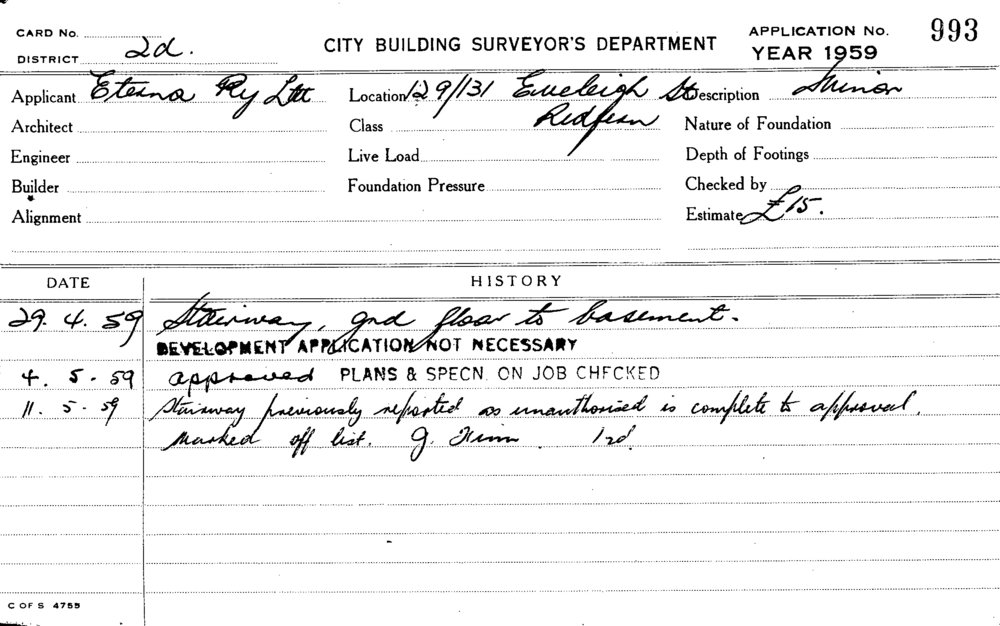 CARD No.
DISTRICT 2d.
CITY BUILDING SURVEYOR'S DEPARTMENT
APPLICATION No. 993
YEAR 1959
Applicant Eterna Pty Ltd Location 129/131 Eveleigh St Description Minor
Redfern
Architect Class Nature of Foundation
Engineer Live Load Depth of Footings
Builder Foundation Pressure Checked by
Alignment Estimate £15.
DATE HISTORY
29. 4. 59 Stairway, gnd floor to basement.
DEVELOPMENT APPLICATION NOT NECESSARY
4. 5. 59 approved PLANS & SPECN. ON JOB CHECKED
11. 5. 59 Stairway previously reported as unauthorised is complete to approval.
Marked off list. G.
C OF S 4755